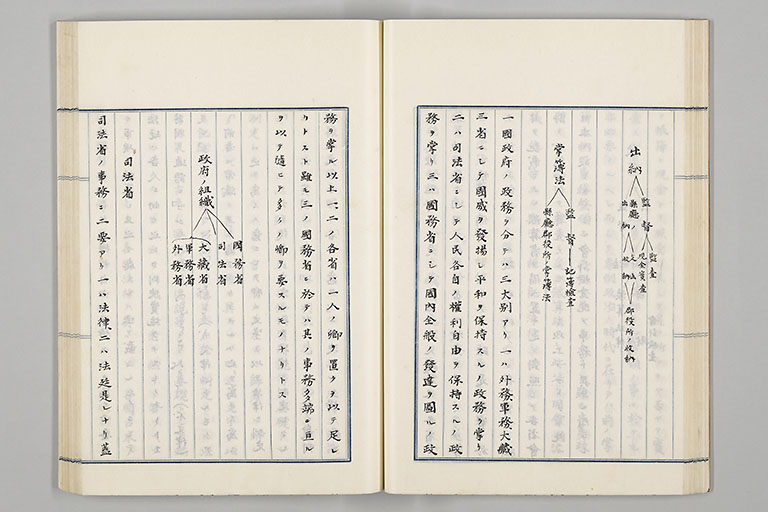 出納
監督
監査
現金實査
縣廳ノ出納
収納
支納法
郡役所ノ收納
常簿法
監督
記簿檢査
縣廳郡役所ノ常簿法
一國政府ノ政務ヲ分テハ三大別アリ一ハ外務軍務大藏
三省ニシテ國威ヲ發揚シ平和ヲ保持スルノ政務ヲ掌リ
二ハ司法省ニシテ人民各自ノ權利自由ヲ保持スルノ政
務ヲ掌リ三ハ國務省ニシテ國內全般ノ發達ヲ圖ルノ政
務ヲ掌ル以上一、二ノ各省ハ一人ノ卿ヲ置クヲ以テ足レ
リトスト雖ニ三ノ國務省ニ於テハ其ノ事務多端ニ亘ル
ヲ以テ隨ヒテ多クノ卿ヲ要スルモノナリトス
政府組織
國務省
司法省
大藏省
軍務省
外務省
司法省
司法省ノ事務ニ二要アリ一ハ法律二ハ法廷是レナリ蓋